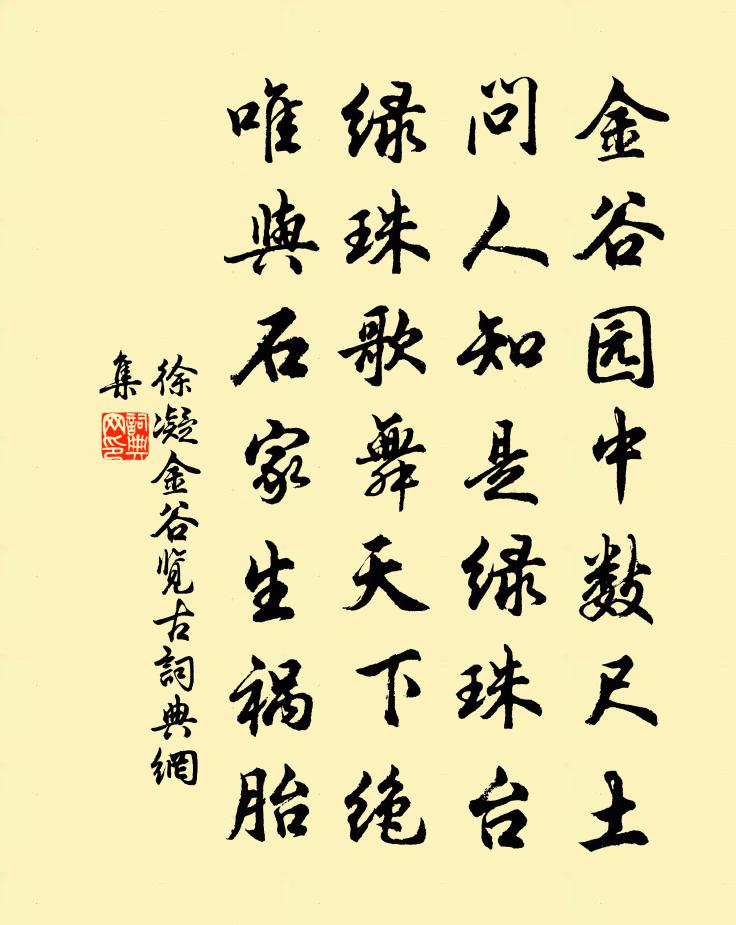 金谷园中数尺土
问人知是绿珠台
绿珠歌舞天下绝
唯與石家生祸胎
徐凝金谷览古詞典網
集
詞典网印